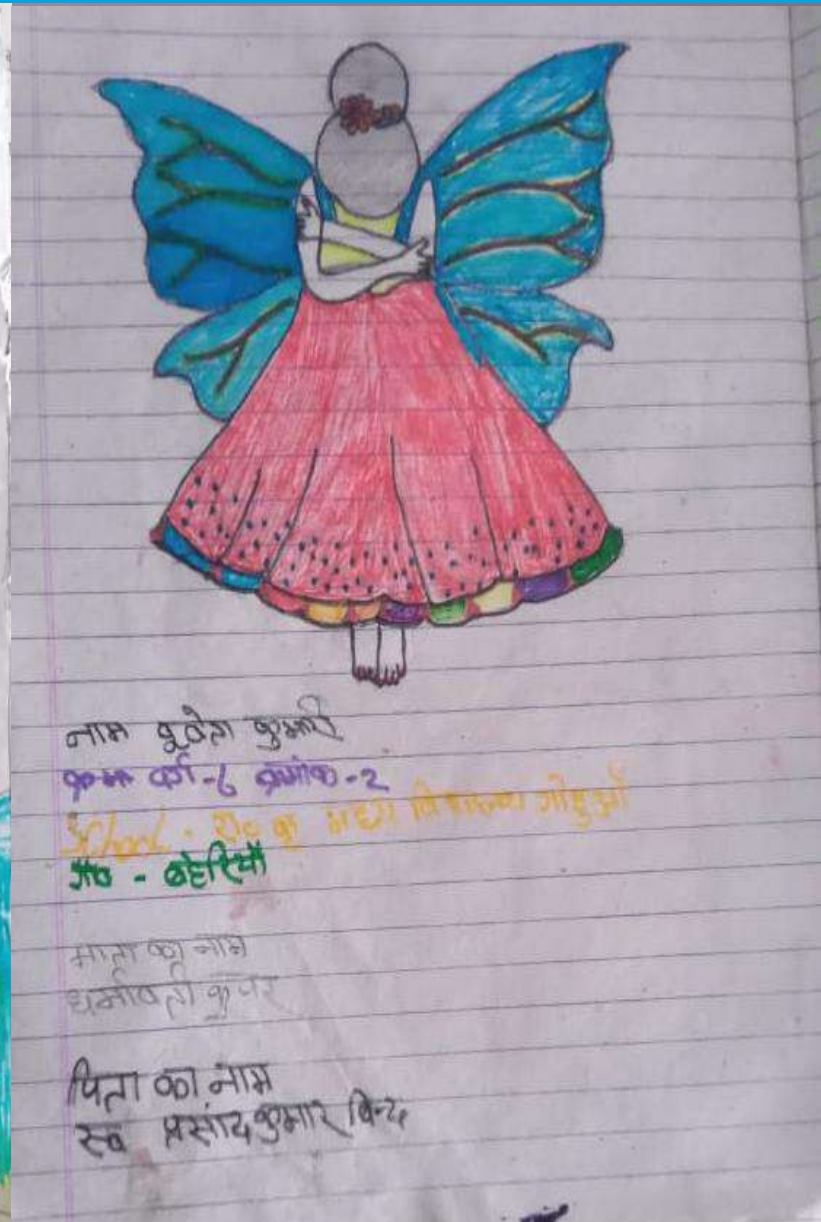 नाम कुमारी
वर्ग-6 क्रमांक-2
School - मध्य विद्यालय
बहेरियाँ
माता का नाम
धर्मावती कुवर
पिता का नाम
स्व प्रसाद कुमार बिन्द